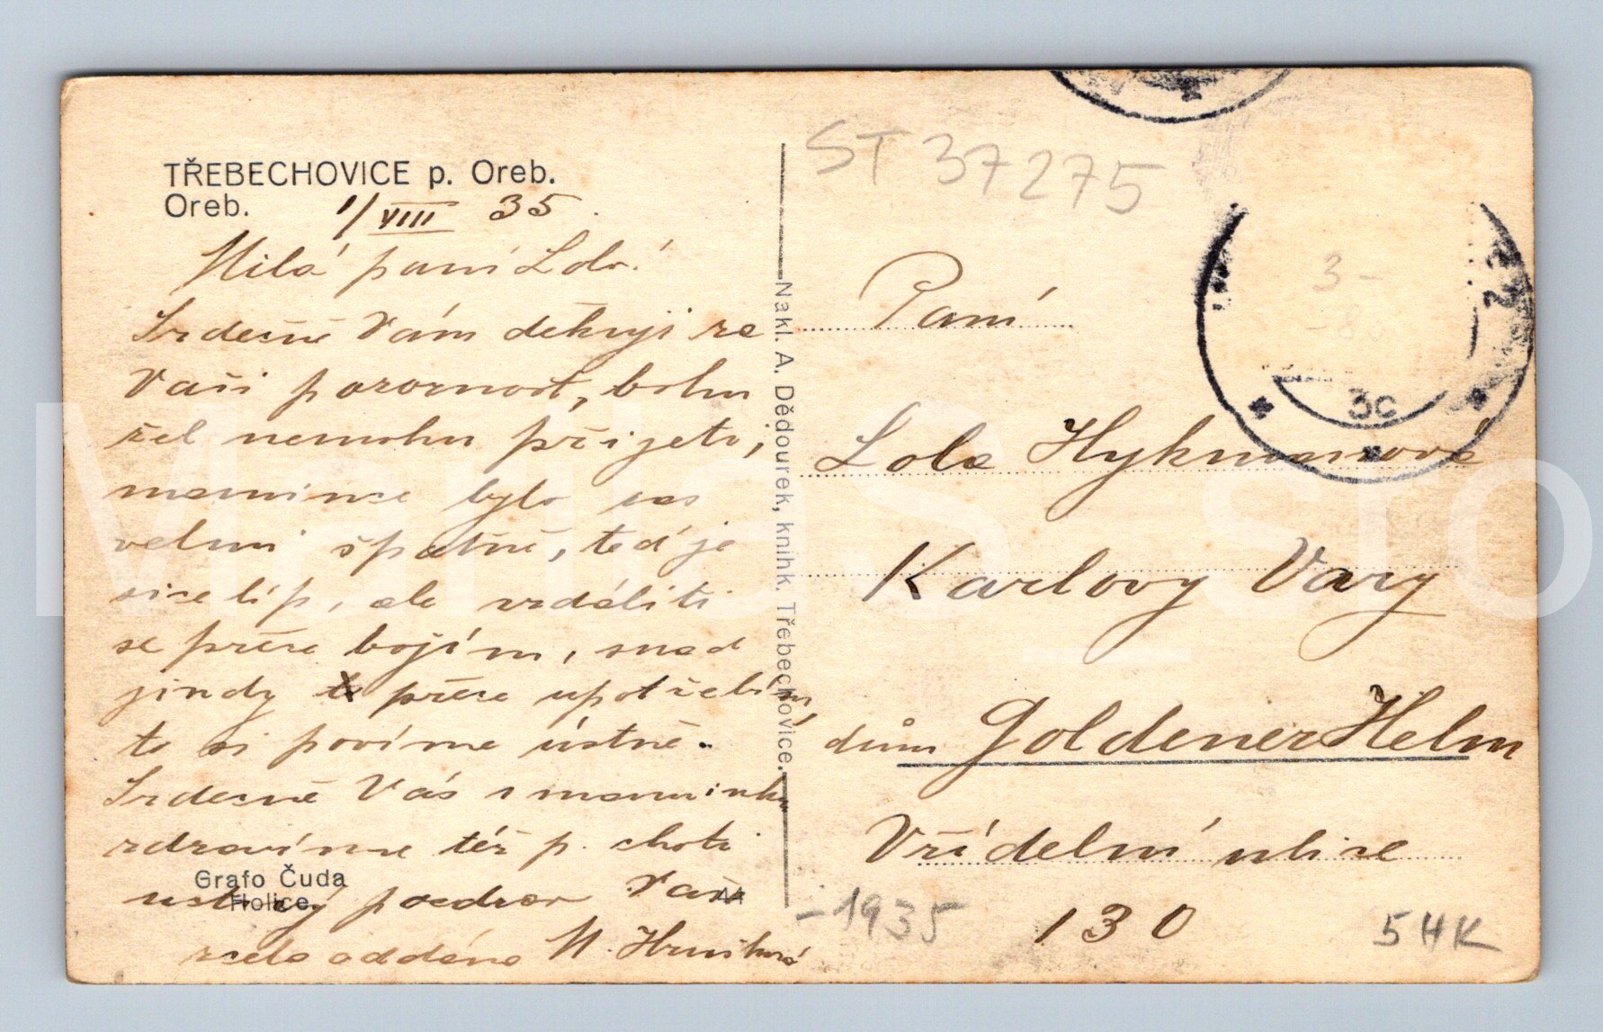 TŘEBECHOVICE p. Oreb.
Oreb.
1/VIII 35.
Milá paní Lolo!
Srdečně Vám děkuji za
Vaši pozornost, bohu
žel nemohu přijeti,
mamince bylo zas
velmi špatně, teď je
sice líp, ale vzdáliti
se přece bojím, snad
jindy přece upotřebím,
to si povíme ústně.
Srdečně Vás i maminku
zdravíme též p. choti
uctivý pozdrav Vaše
zcela oddaná M.
Grafo Čuda
Holice.
Nakl. A. Dědourek, knihk. Třebechovice.
ST 37275
Paní
Lola Hykmanová
Karlovy Vary
dům Goldener Helm
Vřídelní ulice
130
-1935
5 HK
3-
-8
3c